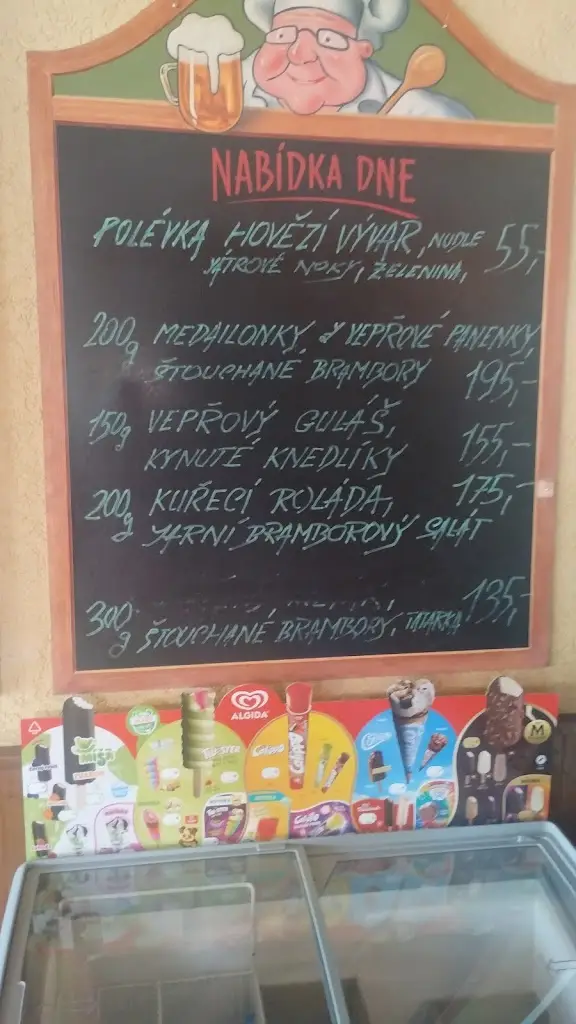 NABÍDKA DNE
POLÉVKA HOVĚZÍ VÝVAR, NUDLE 55,-
JÁTROVÉ NOKY, ZELENINA,
200g MEDAILONKY Z VEPŘOVÉ PANENKY,
ŠTOUCHANÉ BRAMBORY 195,-
150g VEPŘOVÝ GULÁŠ,
KYNUTÉ KNEDLÍKY 155,-
200g KUŘECÍ ROLÁDA, 175,-
JARNÍ BRAMBOROVÝ SALÁT
135,-
300g ŠTOUCHANÉ BRAMBORY, TATARKA
ALGIDA
Míša
Calippo
M